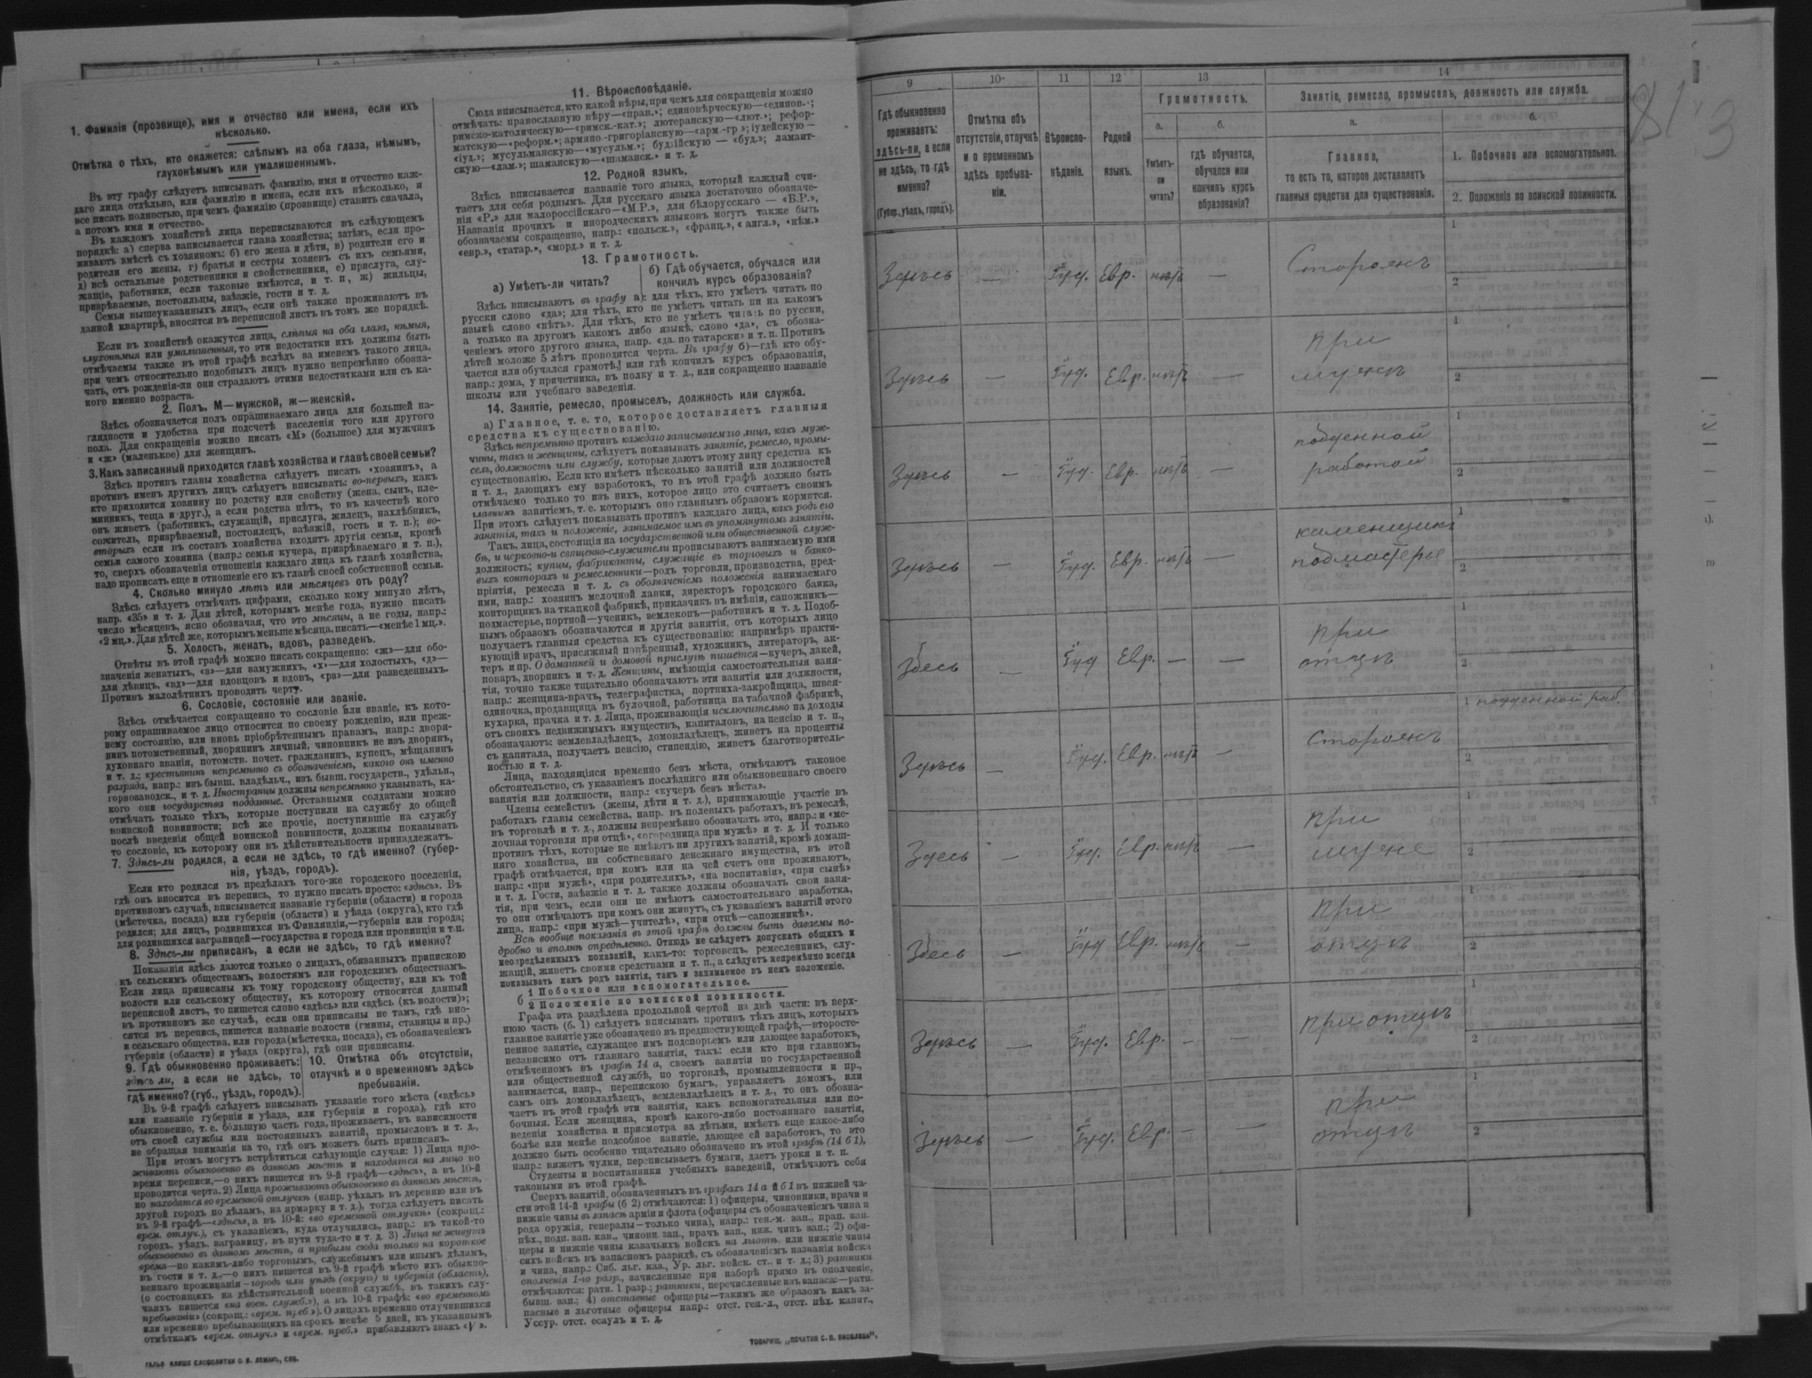 1. Фамилія (прозвище), имя и отчество или имена, если ихъ
нѣсколько.
Отмѣтка о тѣхъ, кто окажется: слѣпымъ на оба глаза, нѣмымъ,
глухонѣмымъ или умалишеннымъ.
Въ эту графу слѣдуетъ вписывать фамилію, имя и отчество каж-
даго лица отдѣльно, или фамилію и имена, если ихъ нѣсколько, и
все писать полностью, при чемъ фамилію (прозвище) ставить сначала,
а потомъ имя и отчество.
Въ каждомъ хозяйствѣ лица переписываются въ слѣдующемъ
порядкѣ: а) сперва записывается глава хозяйства; затѣмъ, если про-
живаютъ вмѣстѣ съ хозяиномъ: б) его жена и дѣти, в) родители его и
родители его жены, г) братья и сестры хозяевъ съ ихъ семьями,
д) всѣ остальные родственники и свойственники, е) прислуга, слу-
жащіе, работники, если таковые имѣются, и т. п., ж) жильцы,
призрѣваемые, постояльцы, заѣзжіе, гости и т. д.
Семьи вышеуказанныхъ лицъ, если онѣ также проживаютъ въ
данной квартирѣ, вносятся въ переписной листъ въ томъ же порядкѣ.
Если въ хозяйствѣ окажутся лица, слѣпыя на оба глаза, нѣмыя,
глухонѣмыя или умалишенныя, то эти недостатки ихъ должны быть
отмѣчаемы также въ этой графѣ вслѣдъ за именемъ такого лица,
при чемъ относительно подобныхъ лицъ нужно непремѣнно обозна-
чать, отъ рожденія-ли они страдаютъ этими недостатками или съ ка-
кого именно возраста.
2. Полъ. М—мужской, ж—женскій.
Здѣсь обозначается полъ опрашиваемаго лица для большей на-
глядности и удобства при подсчетѣ населенія того или другого
пола. Для сокращенія можно писать «М» (большое) для мужчинъ
и «ж» (маленькое) для женщинъ.
3. Какъ записанный приходится главѣ хозяйства и главѣ своей семьи?
Здѣсь противъ главы хозяйства слѣдуетъ писать «хозяинъ», а
противъ именъ другихъ лицъ слѣдуетъ вписывать: во-первыхъ, какъ
кто приходится хозяину по родству или свойству (жена, сынъ, пле-
мянникъ, теща и друг.), а если родства нѣтъ, то въ качествѣ кого
онъ живетъ (работникъ, служащій, прислуга, жилецъ, нахлѣбникъ,
сожитель, призрѣваемый, постоялецъ, заѣзжій, гость и т. п.); во-
вторыхъ если въ составъ хозяйства входятъ другія семьи, кромѣ
семьи самого хозяина (напр.: семья кучера, призрѣваемаго и т. п.),
то, сверхъ обозначенія отношенія каждаго лица къ главѣ хозяйства,
надо прописать еще и отношеніе его къ главѣ своей собственной семьи.
4. Сколько минуло лѣтъ или мѣсяцевъ отъ роду?
Здѣсь слѣдуетъ отмѣчать цифрами, сколько кому минуло лѣтъ,
напр. «35» и т. д. Для дѣтей, которымъ менѣе года, нужно писать
число мѣсяцевъ, ясно обозначая, что это мѣсяцы, а не годы, напр.:
«2 мц.». Для дѣтей же, которымъ меньше мѣсяца, писать—«менѣе 1 мц.».
5. Холостъ, женатъ, вдовъ, разведенъ.
Отвѣты въ этой графѣ можно писать сокращенно: «ж»—для обо-
значенія женатыхъ, «з»—для замужнихъ, «х»—для холостыхъ, «д»—
для дѣвицъ, «вд»—для вдовцовъ и вдовъ, «рз»—для разведенныхъ.
Противъ малолѣтнихъ проводить черту.
6. Сословіе, состояніе или званіе.
Здѣсь отмѣчается сокращенно то сословіе или званіе, къ кото-
рому опрашиваемое лицо относится по своему рожденію, или преж-
нему состоянію, или вновь пріобрѣтеннымъ правамъ, напр.: дворя-
нинъ потомственный, дворянинъ личный, чиновникъ не изъ дворянъ,
духовнаго званія, потомств. почет. гражданинъ, купецъ, мѣщанинъ
и т. д.; крестьянинъ непремѣнно съ обозначеніемъ, какого онъ именно
разряда, напр.: изъ бывш. владѣльч., изъ бывш. государств., удѣльн.,
горнозаводск., и т. д. Иностранцы должны непремѣнно указывать, ка-
кого они государства подданные. Отставными солдатами можно
отмѣчать только тѣхъ, которые поступили на службу до общей
воинской повинности; всѣ же прочіе, поступившіе на службу
послѣ введенія общей воинской повинности, должны показывать
то сословіе, къ которому они въ дѣйствительности принадлежатъ.
7. Здѣсь-ли родился, а если не здѣсь, то гдѣ именно? (губер-
нія, уѣздъ, городъ).
Если кто родился въ предѣлахъ того-же городского поселенія,
гдѣ онъ вносится въ перепись, то нужно писать просто: «здѣсь». Въ
противномъ случаѣ, вписывается названіе губерніи (области) и города
(мѣстечка, посада) или губерніи (области) и уѣзда (округа), кто гдѣ
родился; для лицъ, родившихся въ Финляндіи,—губерніи или города;
для родившихся заграницей—государства и города или провинціи и т.п.
8. Здѣсь-ли приписанъ, а если не здѣсь, то гдѣ именно?
Показанія здѣсь даются только о лицахъ, обязанныхъ припискою
къ сельскимъ обществамъ, волостямъ или городскимъ обществамъ.
Если лица приписаны къ тому городскому обществу, или къ той
волости или сельскому обществу, къ которому относится данный
переписной листъ, то пишется слово «здѣсь» или «здѣсь (къ волости)»;
въ противномъ же случаѣ, если они приписаны не тамъ, гдѣ вно-
сятся въ перепись, пишется названіе волости (гмины, станицы и пр.)
и сельскаго общества, или города (мѣстечка, посада), съ обозначеніемъ
губерніи (области) и уѣзда (округа), гдѣ они приписаны.
9. Гдѣ обыкновенно проживаетъ:
здѣсь ли, а если не здѣсь, то
гдѣ именно? (губ., уѣздъ, городъ).
10. Отмѣтка объ отсутствіи,
отлучкѣ и о временномъ здѣсь
пребываніи.
Въ 9-й графѣ слѣдуетъ вписывать указаніе того мѣста («здѣсь»
или названіе губерніи и уѣзда, или губерніи и города), гдѣ кто
обыкновенно, т. е. большую часть года, проживаетъ, въ зависимости
отъ своей службы или постоянныхъ занятій, промысловъ и т. д.,
не обращая вниманія на то, гдѣ онъ можетъ быть приписанъ.
При этомъ могутъ встрѣтиться слѣдующіе случаи: 1) Лица про-
живаютъ обыкновенно въ данномъ мѣстѣ и находятся на лицо во
время переписи,—о нихъ пишется въ 9-й графѣ—«здѣсь», а въ 10-й
проводится черта. 2) Лица проживаютъ обыкновенно въ данномъ мѣстѣ,
но находятся во временной отлучкѣ (напр. уѣхалъ въ деревню или въ
другой городъ по дѣламъ, на ярмарку и т. д.), тогда слѣдуетъ писать
въ 9-й графѣ—«здѣсь», а въ 10-й: «во временной отлучкѣ» (сокращ.:
врем. отлуч.), съ указаніемъ, куда отлучились, напр.: въ такой-то
городъ, уѣздъ, заграницу, въ пути туда-то и т. д. 3) Лица не живутъ
обыкновенно въ данномъ мѣстѣ, а прибыли сюда только на короткое
время—по какимъ-либо торговымъ, служебнымъ или инымъ дѣламъ,
въ гости и т. д.,—о нихъ пишется въ 9-й графѣ мѣсто ихъ обыкно-
веннаго проживанія—городъ или уѣздъ (округъ) и губернія (область),
(о состоящихъ на дѣйствительной военной службѣ, въ такихъ слу-
чаяхъ пишется «на воен. служб.»), а въ 10-й графѣ: «во временномъ
пребываніи» (сокращ.: «врем. преб.»). О лицахъ временно отлучившихся
или временно пребывающихъ на срокъ менѣе 5 дней, къ указаннымъ
отмѣткамъ «врем. отлуч.» и «врем. преб.» прибавляютъ знакъ «V».
11. Вѣроисповѣданіе.
Сюда вписывается, кто какой вѣры, при чемъ для сокращенія можно
отмѣчать: православную вѣру—«прав.»; единовѣрческую—«единов.»;
римско-католическую—«римск.-кат.»; лютеранскую—«лют.»; рефор-
матскую—«реформ.»; армяно-григоріанскую—«арм.-гр.»; іудейскую—
«іуд.»; мусульманскую—«мусульм.»; буддійскую — «буд.»; ламаит-
скую—«лам.»; шаманскую—«шаманск.» и т. д.
12. Родной языкъ.
Здѣсь вписывается названіе того языка, который каждый счи-
таетъ для себя роднымъ. Для русскаго языка достаточно обозначе-
нія «Р.» для малороссійскаго—«М.Р.», для бѣлорусскаго — «Б.Р.».
Названія прочихъ и инородческихъ языковъ могутъ также быть
обозначаемы сокращенно, напр.: «польск.», «франц.», «англ.», «нѣм.»
«евр.», «татар.», «морд.» и т. д.
13. Грамотность.
а) Умѣетъ-ли читать?
б) Гдѣ обучается, обучался или
кончилъ курсъ образованія?
Здѣсь вписываютъ въ графу а): для тѣхъ, кто умѣетъ читать по
русски слово «да»; для тѣхъ, кто не умѣетъ читать ни на какомъ
языкѣ слово «нѣтъ». Для тѣхъ, кто не умѣетъ читать по русски,
а только на другомъ какомъ либо языкѣ, слово «да», съ обозна-
ченіемъ этого другого языка, напр. «да, по татарски» и т. п. Противъ
дѣтей моложе 5 лѣтъ проводится черта. Въ графу б)—гдѣ кто обу-
чается или обучался грамотѣ, или гдѣ кончилъ курсъ образованія,
напр.: дома, у причетника, въ полку и т. д., или сокращенно названіе
школы или учебнаго заведенія.
14. Занятіе, ремесло, промыселъ, должность или служба.
а) Главное, т. е. то, которое доставляетъ главныя
средства къ существованію.
Здѣсь непремѣнно противъ каждаго записываемаго лица, какъ муж-
чины, такъ и женщины, слѣдуетъ показывать занятіе, ремесло, промы-
селъ, должность или службу, которые даютъ этому лицу средства къ
существованію. Если кто имѣетъ нѣсколько занятій или должностей
и т. д., дающихъ ему заработокъ, то въ этой графѣ должно быть
отмѣчаемо только то изъ нихъ, которое лицо это считаетъ своимъ
главнымъ занятіемъ, т. е. которымъ оно главнымъ образомъ кормится.
При этомъ слѣдуетъ показывать противъ каждаго лица, какъ родъ его
занятія, такъ и положеніе, занимаемое имъ въ упомянутомъ занятіи.
Такъ, лица, состоящія на государственной или общественной служ-
бѣ, и церковно-и священно-служители прописываютъ занимаемую ими
должность; купцы, фабриканты, служащіе въ торговыхъ и банко-
выхъ конторахъ и ремесленники—родъ торговли, производства, пред-
пріятія, ремесла и т. д. съ обозначеніемъ положенія занимаемаго
ими, напр.: хозяинъ мелочной лавки, директоръ городского банка,
конторщикъ на ткацкой фабрикѣ, приказчикъ въ имѣніи, сапожникъ—
подмастерье, портной—ученикъ, землекопъ—работникъ и т. д. Подоб-
нымъ образомъ обозначаются и другія занятія, отъ которыхъ лицо
получаетъ главныя средства къ существованію: напримѣръ практи-
кующій врачъ, присяжный повѣренный, художникъ, литераторъ, ак-
теръ и пр. О домашней и домовой прислугѣ пишется—кучеръ, лакей,
поваръ, дворникъ и т. д. Женщины, имѣющія самостоятельныя заня-
тія, точно также тщательно обозначаютъ эти занятія или должности,
напр.: женщина-врачъ, телеграфистка, портниха-закройщица, швея-
одиночка, продавщица въ булочной, работница на табачной фабрикѣ,
кухарка, прачка и т. д. Лица, проживающія исключительно на доходы
отъ своихъ недвижимыхъ имуществъ, капиталовъ, на пенсію и т. п.,
обозначаютъ: землевладѣлецъ, домовладѣлецъ, живетъ на проценты
съ капитала, получаетъ пенсію, стипендію, живетъ благотворитель-
ностью и т. д.
Лица, находящіяся временно безъ мѣста, отмѣчаютъ таковое
обстоятельство, съ указаніемъ послѣдняго или обыкновеннаго своего
занятія или должности, напр.: «кучеръ безъ мѣста».
Члены семействъ (жены, дѣти и т. д.), принимающіе участіе въ
работахъ главы семейства, напр. въ полевыхъ работахъ, въ ремеслѣ,
въ торговлѣ и т. д., должны непремѣнно обозначать это, напр.: и «ме-
лочная торговля при отцѣ», «огородница при мужѣ» и т. д. И только
противъ тѣхъ, которые не имѣютъ ни другихъ занятій, кромѣ домаш-
няго хозяйства, ни собственнаго денежнаго имущества, въ этой
графѣ отмѣчается, при комъ или на чей счетъ они проживаютъ,
напр.: «при мужѣ», «при родителяхъ», «на воспитаніи», «при сынѣ»
и т. д. Гости, заѣзжіе и т. д. также должны обозначать свои заня-
тія, при чемъ, если они не имѣютъ самостоятельнаго заработка,
то они отмѣчаютъ при комъ они живутъ, съ указаніемъ занятій этого
лица, напр.: «при мужѣ—учителѣ», «при отцѣ—сапожникѣ».
Всѣ вообще показанія въ этой графѣ должны быть даваемы по-
дробно и вполнѣ опредѣленно. Отнюдь не слѣдуетъ допускать общихъ и
неопредѣленныхъ показаній, какъ-то: торговецъ, ремесленникъ, слу-
жащій, живетъ своими средствами и т. п., а слѣдуетъ непремѣнно всегда
показывать какъ родъ занятія, такъ и занимаемое въ немъ положеніе.
б 1 Побочное или вспомогательное.
2 Положеніе по воинской повинности.
Графа эта раздѣлена продольной чертой на двѣ части: въ верх-
нюю часть (б. 1) слѣдуетъ вписывать противъ тѣхъ лицъ, которыхъ
главное занятіе уже обозначено въ предшествующей графѣ,—второсте-
пенное занятіе, служащее имъ подспорьемъ или дающее заработокъ,
независимо отъ главнаго занятія, такъ: если кто при главномъ,
отмѣченномъ въ графѣ 14 а, своемъ занятіи по государственной
или общественной службѣ, по торговлѣ, промышленности и пр.,
занимается, напр., перепискою бумагъ, управляетъ домомъ, или
самъ онъ домовладѣлецъ, землевладѣлецъ и т. д., то онъ обозна-
чаетъ въ этой графѣ эти занятія, какъ вспомогательныя или по-
бочныя. Если женщина, кромѣ какого-либо постояннаго занятія,
веденія хозяйства и присмотра за дѣтьми, имѣетъ еще какое-либо
болѣе или менѣе подсобное занятіе, дающее ей заработокъ, то это
должно быть особенно тщательно обозначено въ этой графѣ (14 б 1),
напр.: вяжетъ чулки, переписываетъ бумаги, даетъ уроки и т. п.
Студенты и воспитанники учебныхъ заведеній, отмѣчаютъ себя
таковыми въ этой графѣ.
Сверхъ занятій, обозначенныхъ въ графахъ 14 а и б 1 въ нижней ча-
сти этой 14-й графы (б 2) отмѣчаются: 1) офицеры, чиновники, врачи и
нижніе чины въ запасѣ арміи и флота (офицеры съ обозначеніемъ чина и
рода оружія, генералы—только чина), напр.: ген.-м. зап., прап. зап.
пѣх., подп. зап. кав., чиновн. зап., врачъ зап., ниж. чинъ зап.; 2) офи-
церы и нижніе чины казачьихъ войскъ на льготѣ, или нижніе чины
сихъ войскъ въ запасномъ разрядѣ, съ обозначеніемъ названія войска
и чина, напр.: Сиб. льг. каз., Ур. льг. войск. ст. и т. д.; 3) ратники
ополченія 1-го разр., зачисленные при наборѣ прямо въ ополченіе,
отмѣчаются: ратн. 1 разр.; ратники, перечисленные изъ запаса:—ратн.
бывш. зап.; 4) отставные офицеры—такимъ же образомъ какъ за-
пасные и льготные офицеры напр.: отст. ген.-л., отст. пѣх. капит.,
Уссур. отст. есаулъ и т. д.
ТОВАРИЩ. „ПЕЧАТНЯ С. П. ЯКОВЛЕВА“.
9 10 11 12 13 14
Гдѣ обыкновенно
проживаетъ:
здѣсь-ли, а если
не здѣсь, то гдѣ
именно?
(Губер., уѣздъ, городъ).
Отмѣтка объ
отсутствіи, отлучкѣ
и о временномъ
здѣсь пребыва-
ніи.
Вѣроиспо-
вѣданіе.
Родной
языкъ.
Грамотность.
а.
Умѣетъ-
ли
читать?
б.
гдѣ обучается,
обучался или
кончилъ курсъ
образованія?
Занятіе, ремесло, промыселъ, должность или служба.
а.
Главное,
то есть то, которое доставляетъ
главныя средства для существованія.
б.
1. Побочное или вспомогательное.
2. Положеніе по воинской повинности.
Здѣсь — Іуд. Евр. нѣтъ — Сторожъ
1
2
Здѣсь — Іуд. Евр. нѣтъ — при
мужѣ
1
2
Здѣсь — Іуд. Евр. нѣтъ — поденной
работой
1
2
Здѣсь — Іуд. Евр. нѣтъ — каменщикъ
подмастерье
1
2
Здесь — Іуд Евр. — — при
отцѣ
1
2
Здѣсь — Іуд. Евр. нѣтъ — Сторожъ
1 поденной раб.
2
Здесь — Іуд. Евр. нѣтъ — при
муже
1
2
Здесь — Іуд Евр. нѣтъ — при
отцѣ
1
2
Здѣсь — Іуд. Евр. — — при отцѣ
1
2
Здѣсь — Іуд. Евр. — — при
отцѣ
1
2